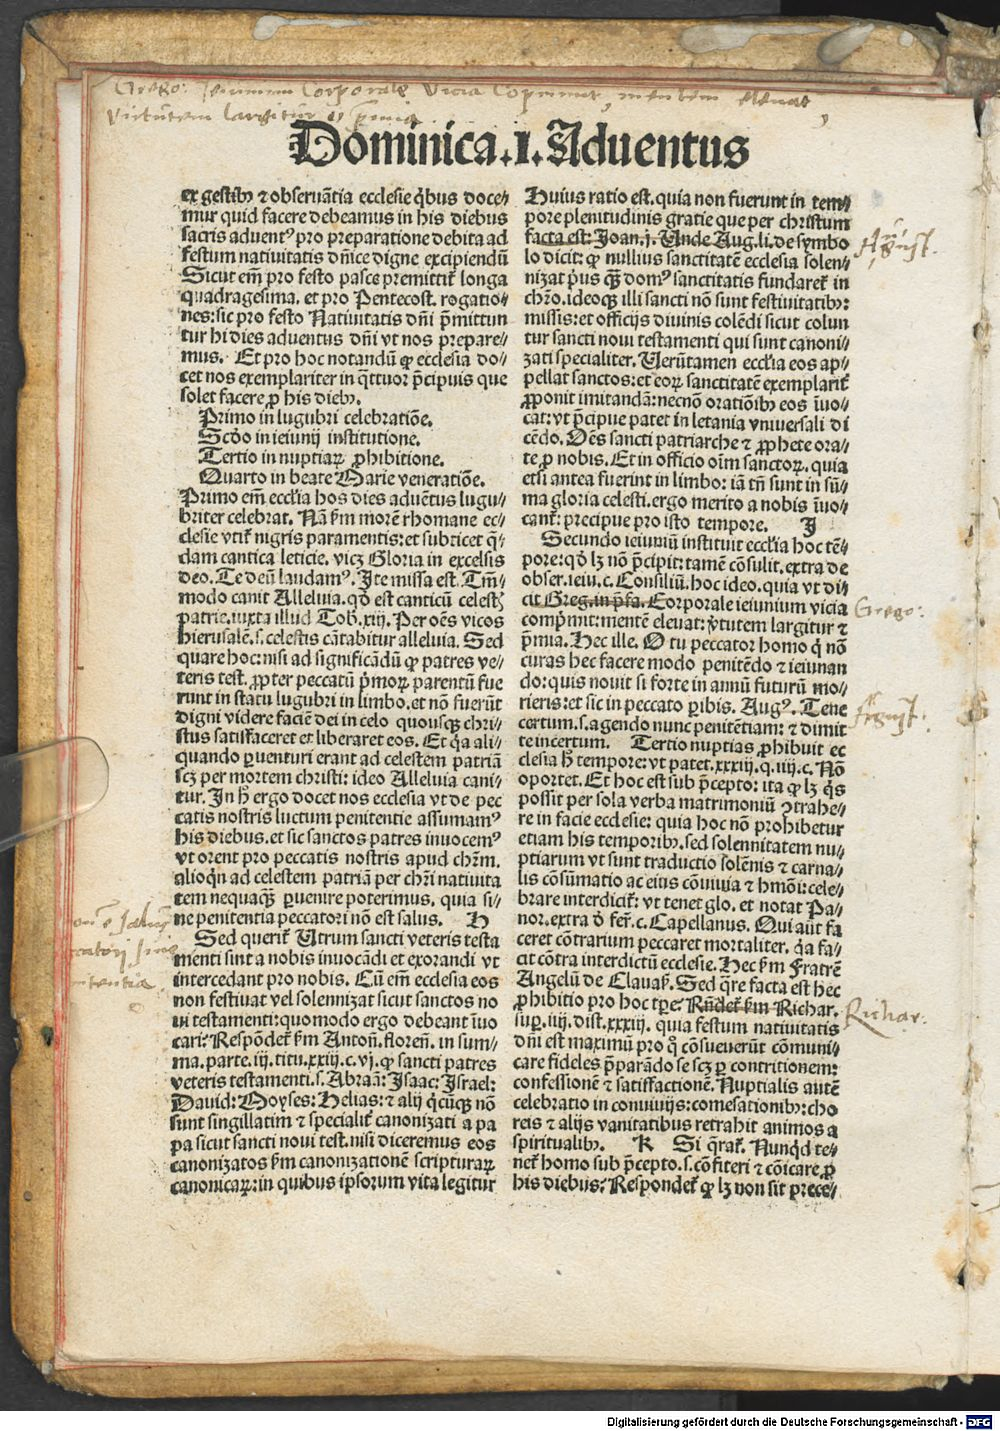 Grego: Ieiunium Corporale Vicia Coprimit, mentem eleuat,
Virtutem largitur & p̄mia
Dominica .I. Aduentus
ex gestibꝫ ⁊ obseruātia ecclesie q̇bus doce⸗
mur quid facere debeamus in his diebus
sacris aduentꝰ pro preparatione debita ad
festum natiuitatis dn̄ice digne excipiendū
Sicut em̄ pro festo pasce premittit᷑ longa
quadragesima. et pro Pentecost. rogatio⸗
nes: sic pro festo Natiuitatis dn̄i p̄mittun
tur hi dies aduentus dn̄i vt nos prepare⸗
mus. Et pro hoc notandū ꝙ ecclesia do⸗
cet nos exemplariter in q̄ttuor p̄cipuis que
solet facere ꝓ his diebꝫ.
Primo in lugubri celebratiōe.
Scd̄o in ieiunij institutione.
Tertio in nuptiaꝝ ꝓhibitione.
Quarto in beate Marie veneratiōe.
Primo em̄ eccl̄ia hos dies aduētus lugu⸗
briter celebrat. Nā ẜm morē rhomane ec⸗
clesie vtit᷑ nigris paramentis: et subticet q̄⸗
dam cantica leticie. vicꝫ Gloria in excelsis
deo. Te deū laudamꝰ. Ite missa est. Tm̄⸗
modo canit Alleluia. qd̄ est canticū celest̄
patrie. iuxta illud Tob̄. xiij. Per oēs vicos
hierusalē. s. celestis cātabitur alleluia. Sed
quare hoc: nisi ad significādū ꝙ patres ve⸗
teris test. ꝓpter peccatū p̄moꝝ parentū fue
runt in statu lugubri in limbo. et nō fuerūt
digni videre faciē dei in celo quousqꝫ chri⸗
stus satisfaceret et liberaret eos. Et q̇a ali⸗
quando ꝑuenturi erant ad celestem patriā
scꝫ per mortem christi: ideo Alleluia cani⸗
tur. In h̄ ergo docet nos ecclesia vt de pec
catis nostris luctum penitentie assumamꝰ
his diebus. et sic sanctos patres inuocemꝰ
vt orent pro peccatis nostris apud chr̄m.
alioq̇n ad celestem patriā per chr̄i natiuita
tem nequaqꝫ ꝑuenire poterimus, quia si⸗
ne penitentia peccatori nō est salus. H
Sed querit᷑ Vtrum sancti veteris testa
menti sint a nobis inuocādi et exorandi vt
intercedant pro nobis. Cū em̄ ecclesia eos
non festiuat vel solennizat sicut sanctos no
ui testamenti: quomodo ergo debeant īuo
cari? Respōdet᷑ ẜm Anton̄. floren̄. in sum⸗
ma. parte. iij. titu. xxiij. c. vj. ꝙ sancti patres
veteris testamenti. s. Abraā: Isaac: Israel:
Dauid: Moyses: Helias: ⁊ alij q̇cūqꝫ nō
sunt singillatim ⁊ specialit᷑ canonizati a pa
pa sicut sancti noui test. nisi diceremus eos
canonizatos ẜm canonizationē scripturaꝝ
canonicaꝝ: in quibus ipsorum vita legitur
Huius ratio est. quia non fuerunt in tem⸗
pore plenitudinis gratie que per christum
facta est: Joan. j. Unde Aug. li. de symbo
lo dicit: ꝙ nullius sanctitatē ecclesia solen⸗
nizat p̄us qꝫ domꝰ sanctitatis fundaret᷑ in
chr̄o. ideoqꝫ illi sancti nō sunt festiuitatibꝫ:
missis: et officijs diuinis colēdi sicut colun
tur sancti noui testamenti qui sunt canoni⸗
zati specialiter. Verūtamen eccl̄ia eos ap⸗
pellat sanctos: et eoꝝ sanctitatē exemplarit᷑
ꝓponit imitandā: necnō oratiōibꝫ eos īuo⸗
cat: vt p̄cipue patet in letania vniuersali di
cēdo. Oēs sancti patriarche ⁊ ꝓphete ora⸗
te ꝓ nobis. Et in officio oīm sanctoꝝ. quia
etsi antea fuerint in limbo: iā tn̄ sunt in sū⸗
ma gloria celesti. ergo merito a nobis īuo⸗
cant᷑: precipue pro isto tempore. I
Secundo ieiuniū instituit eccl̄ia hoc tē⸗
pore: qd̄ lꝫ nō p̄cipit: tamē cōsulit. extra de
obser. ieiu. c. Consiliū. hoc ideo. quia vt di⸗
cit Greg. in p̄fa. Corporale ieiunium vicia
comp̄mit: mentē eleuat: v̇tutem largitur ⁊
p̄mia. Hec ille. O tu peccator homo q̇ nō
curas hec facere modo penitēdo ⁊ ieiunan
do: quis nouit si forte in annū futurū mo⸗
rieris: et sic in peccato ꝑibis. Augꝰ. Tene
certum. s. agendo nunc penitētiam: ⁊ dimit
te incertum. Tertio nuptias ꝓhibuit ec
clesia h̄ tempore: vt patet. xxxiij. q. iiij. c. Nō
oportet. Et hoc est sub p̄cepto: ita ꝙ lꝫ q̇s
possit per sola verba matrimoniū ↄtrahe⸗
re in facie ecclesie: quia hoc nō prohibetur
etiam his temporibꝫ. sed solennitatem nu⸗
ptiarum vt sunt traductio solēnis ⁊ carna⸗
lis cōsūmatio ac eius cōuiuia ⁊ hmōi: cele⸗
brare interdicit᷑: vt tenet glo. et notat Pa⸗
nor. extra d̄ fer̄. c. Capellanus. Qui aūt fa
ceret cōtrarium peccaret mortaliter. q̇a fa⸗
cit cōtra interdictū ecclesie. Hec ẜm Fratrē
Angelū de Clauaẜ. Sed q̄re facta est hec
ꝓhibitio pro hoc tp̄e? Rn̄det᷑ ẜm Richar.
suꝑ. iiij. dist. xxxiij. quia festum natiuitatis
dn̄i est maximū pro q̊ cōsueuerūt cōmuni⸗
care fideles p̄parādo se scꝫ ꝑ contritionem:
confessionē ⁊ satisfactionē. Nuptialis autē
celebratio in conuiuijs: comesationibꝫ: cho
reis ⁊ alijs vanitatibus retrahit animos a
spiritualibꝫ. K Si q̄rat᷑. Nunq̇d te⸗
net᷑ homo sub p̄cepto. s. cōfiteri ⁊ cōicare ꝓ
his diebus? Respondet᷑ ꝙ lꝫ non sit prece⸗
August.
Grego:
August.
Richar.
Digitalisierung gefördert durch die Deutsche Forschungsgemeinschaft - DFG